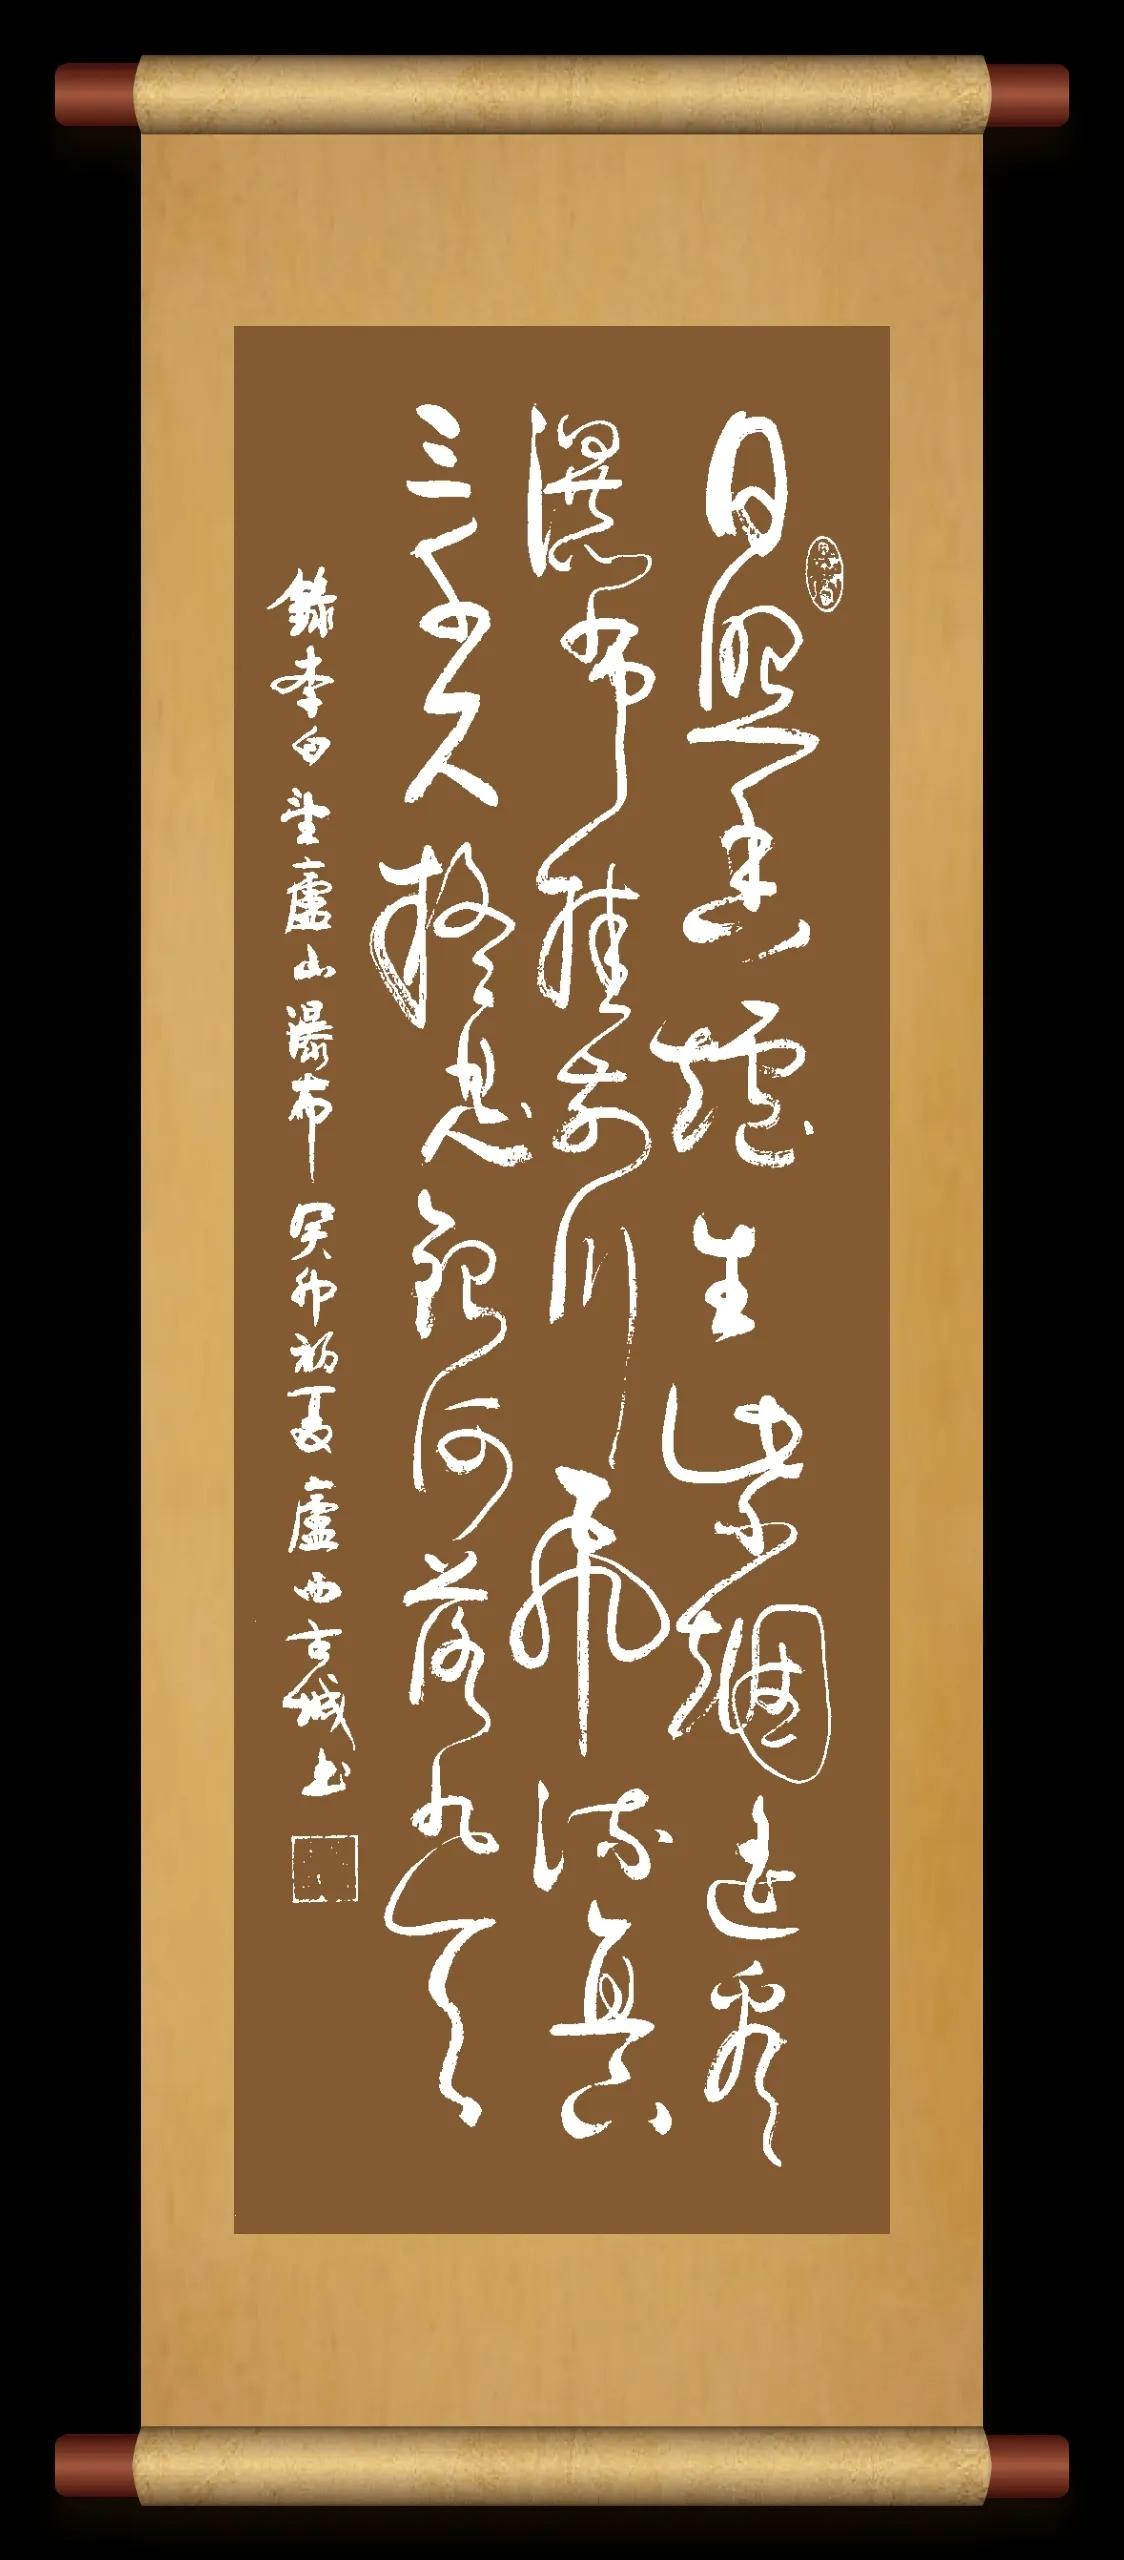 日照香爐生紫烟遥看
瀑布挂前川飛流直下
三千尺疑是銀河落九天
錄李白望廬山瀑布 癸卯初夏 廬西古城书